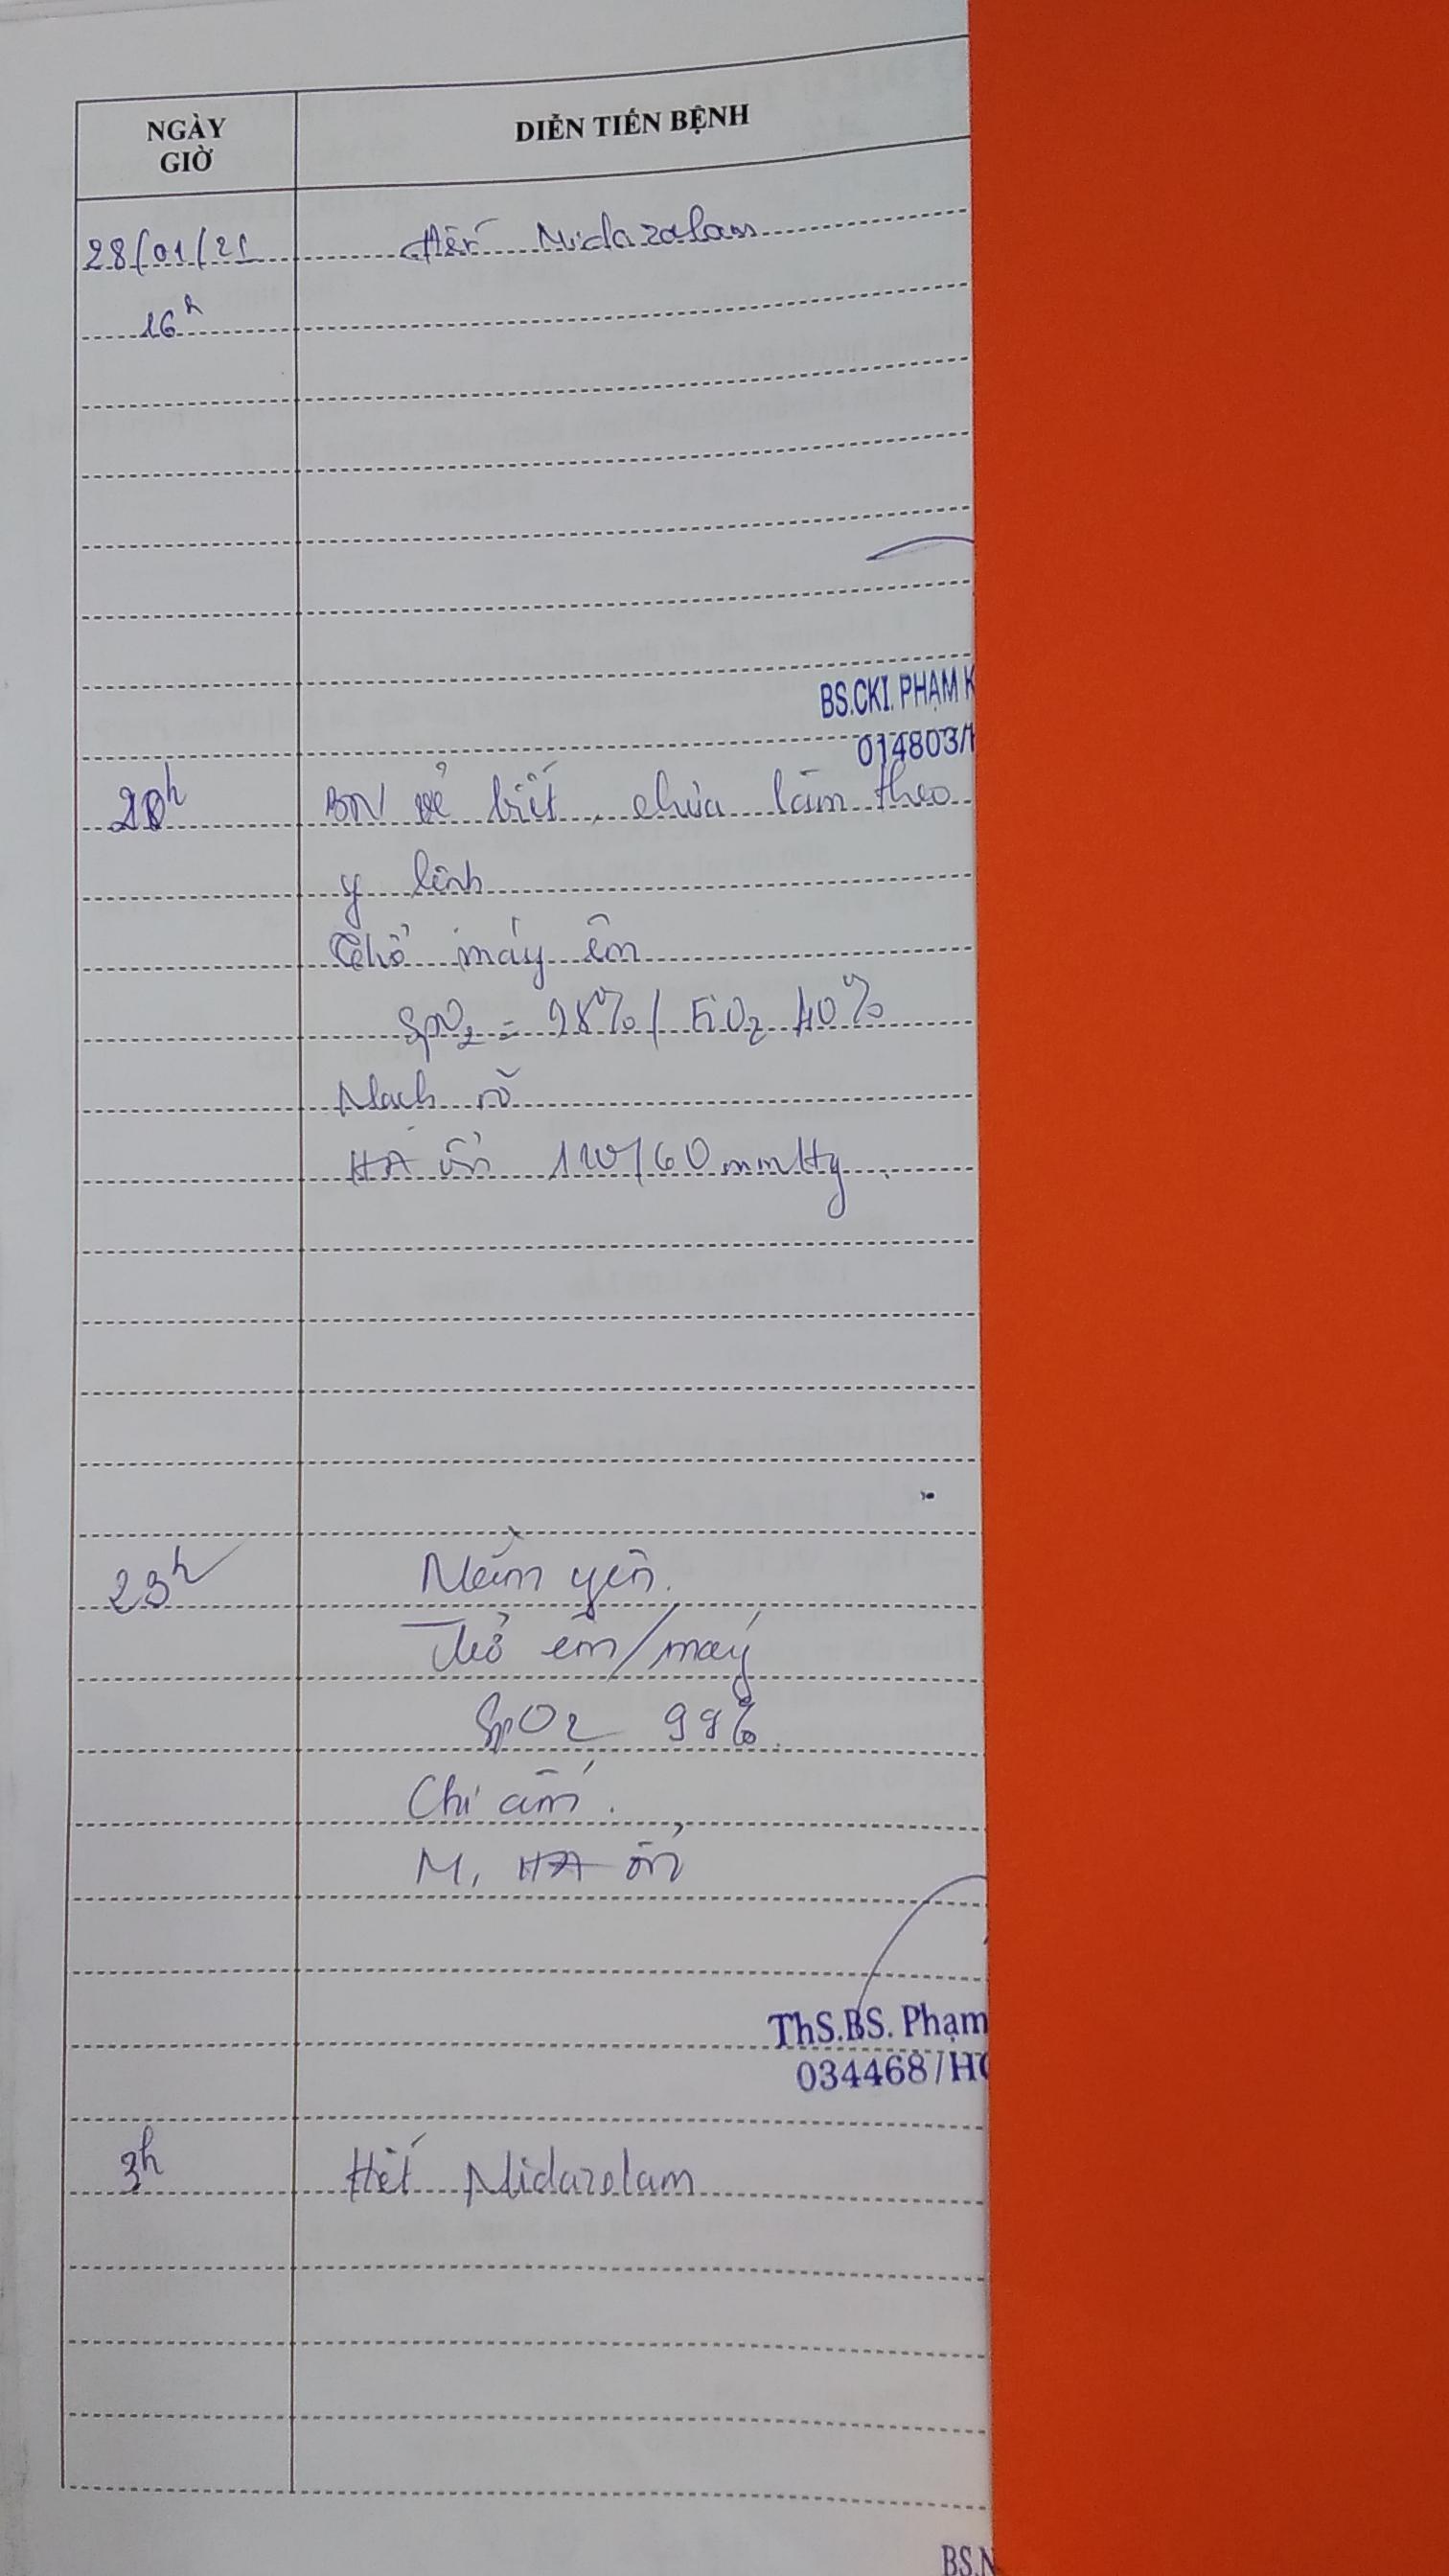 NGÀY
GIỜ
DIỄN TIẾN BỆNH
28/01/21 Hết Midazolam
16h
BS.CKI. PHẠM K
014803/
20h BN vẻ biết, chưa làm theo
y lệnh
Thở máy êm
SpO2 = 98% / FiO2 40%
Mạch rõ
HA ổn 120/60 mmHg.
23h Nằm yên.
Thở êm/máy
SpO2 99%.
Chi ấm.
M, HA ổn
ThS.BS. Phạm
034468/H
3h Hết Midazolam
BS.N